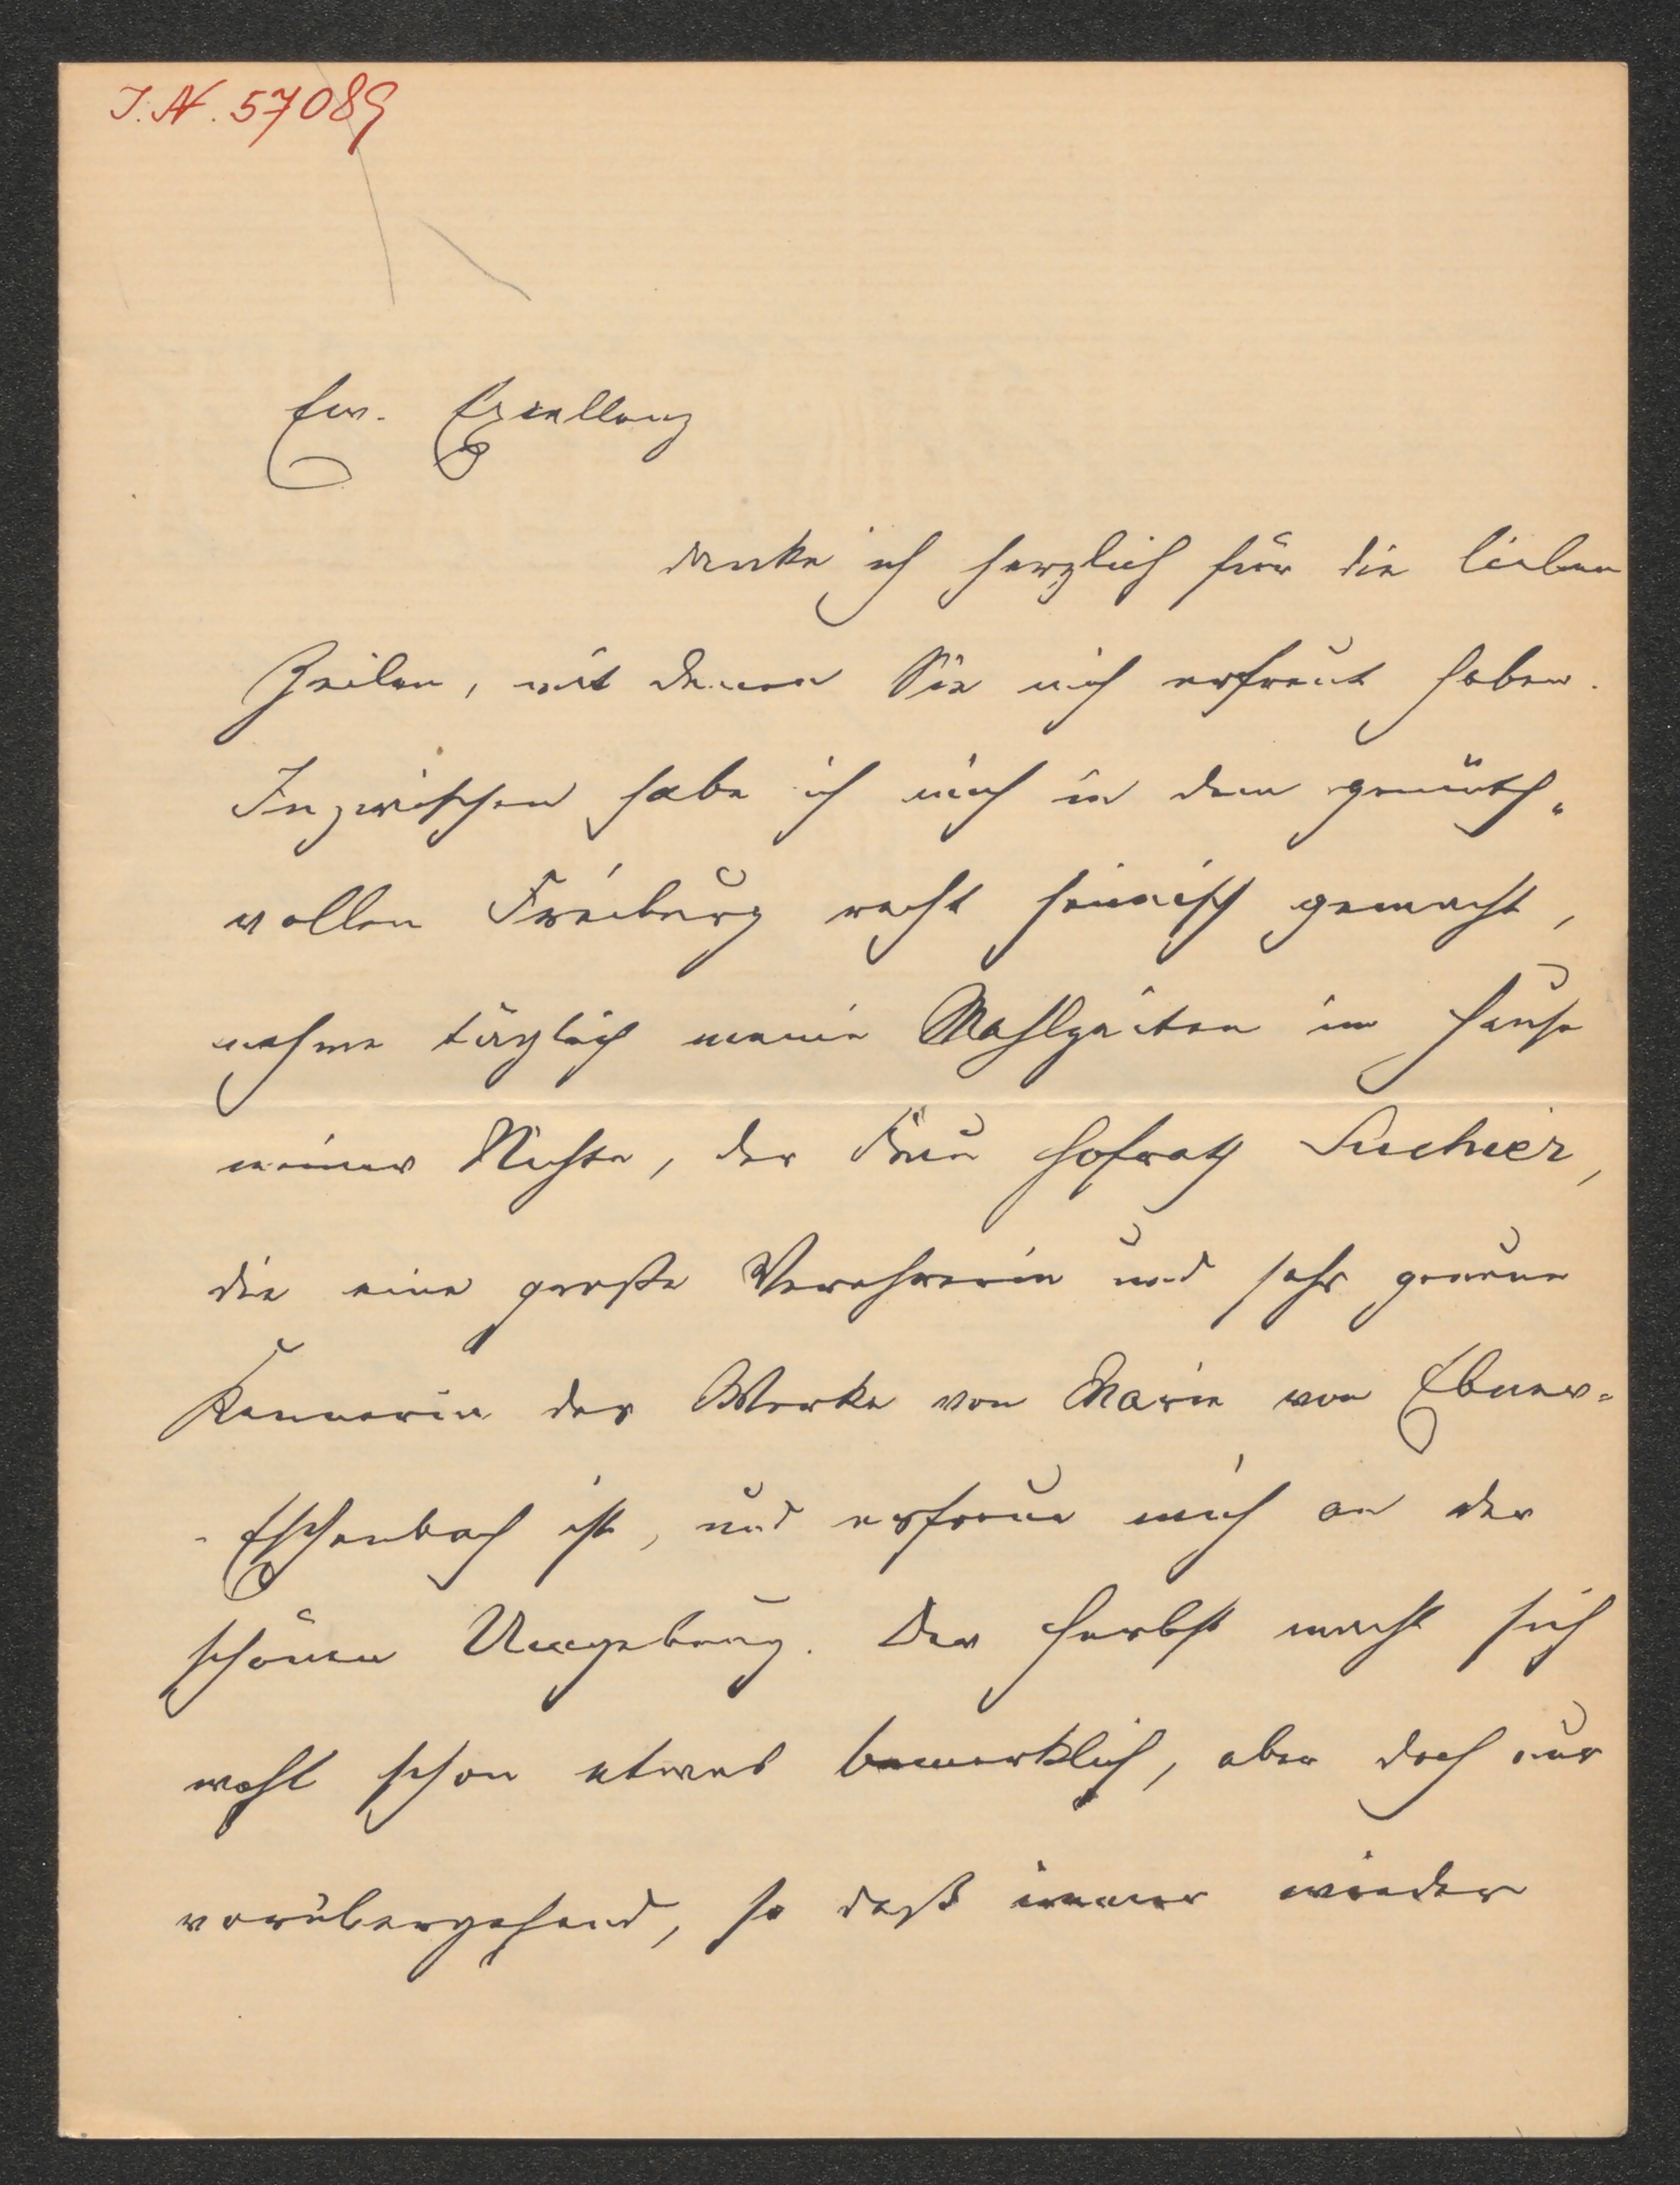 I. N. 57089
Ew. Exzellenz
danke ich herzlich für die lieben
Zeilen, mit denen Sie mich erfreut haben.
Inzwischen habe ich mich in dem gemüth-
vollen Freiburg recht heimisch gemacht,
nehme täglich meine Mahlzeiten im Hause
meiner Nichte, der Frau Hofrath Suchier,
die eine große Verehrerin und sehr genaue
Kennerin der Werke von Marie von Ebner-
-Eschenbach ist, und erfreue mich an der
schönen Umgebung. Der Herbst macht sich
wohl schon etwas bemerklich, aber doch nur
vorübergehend, so daß immer wieder